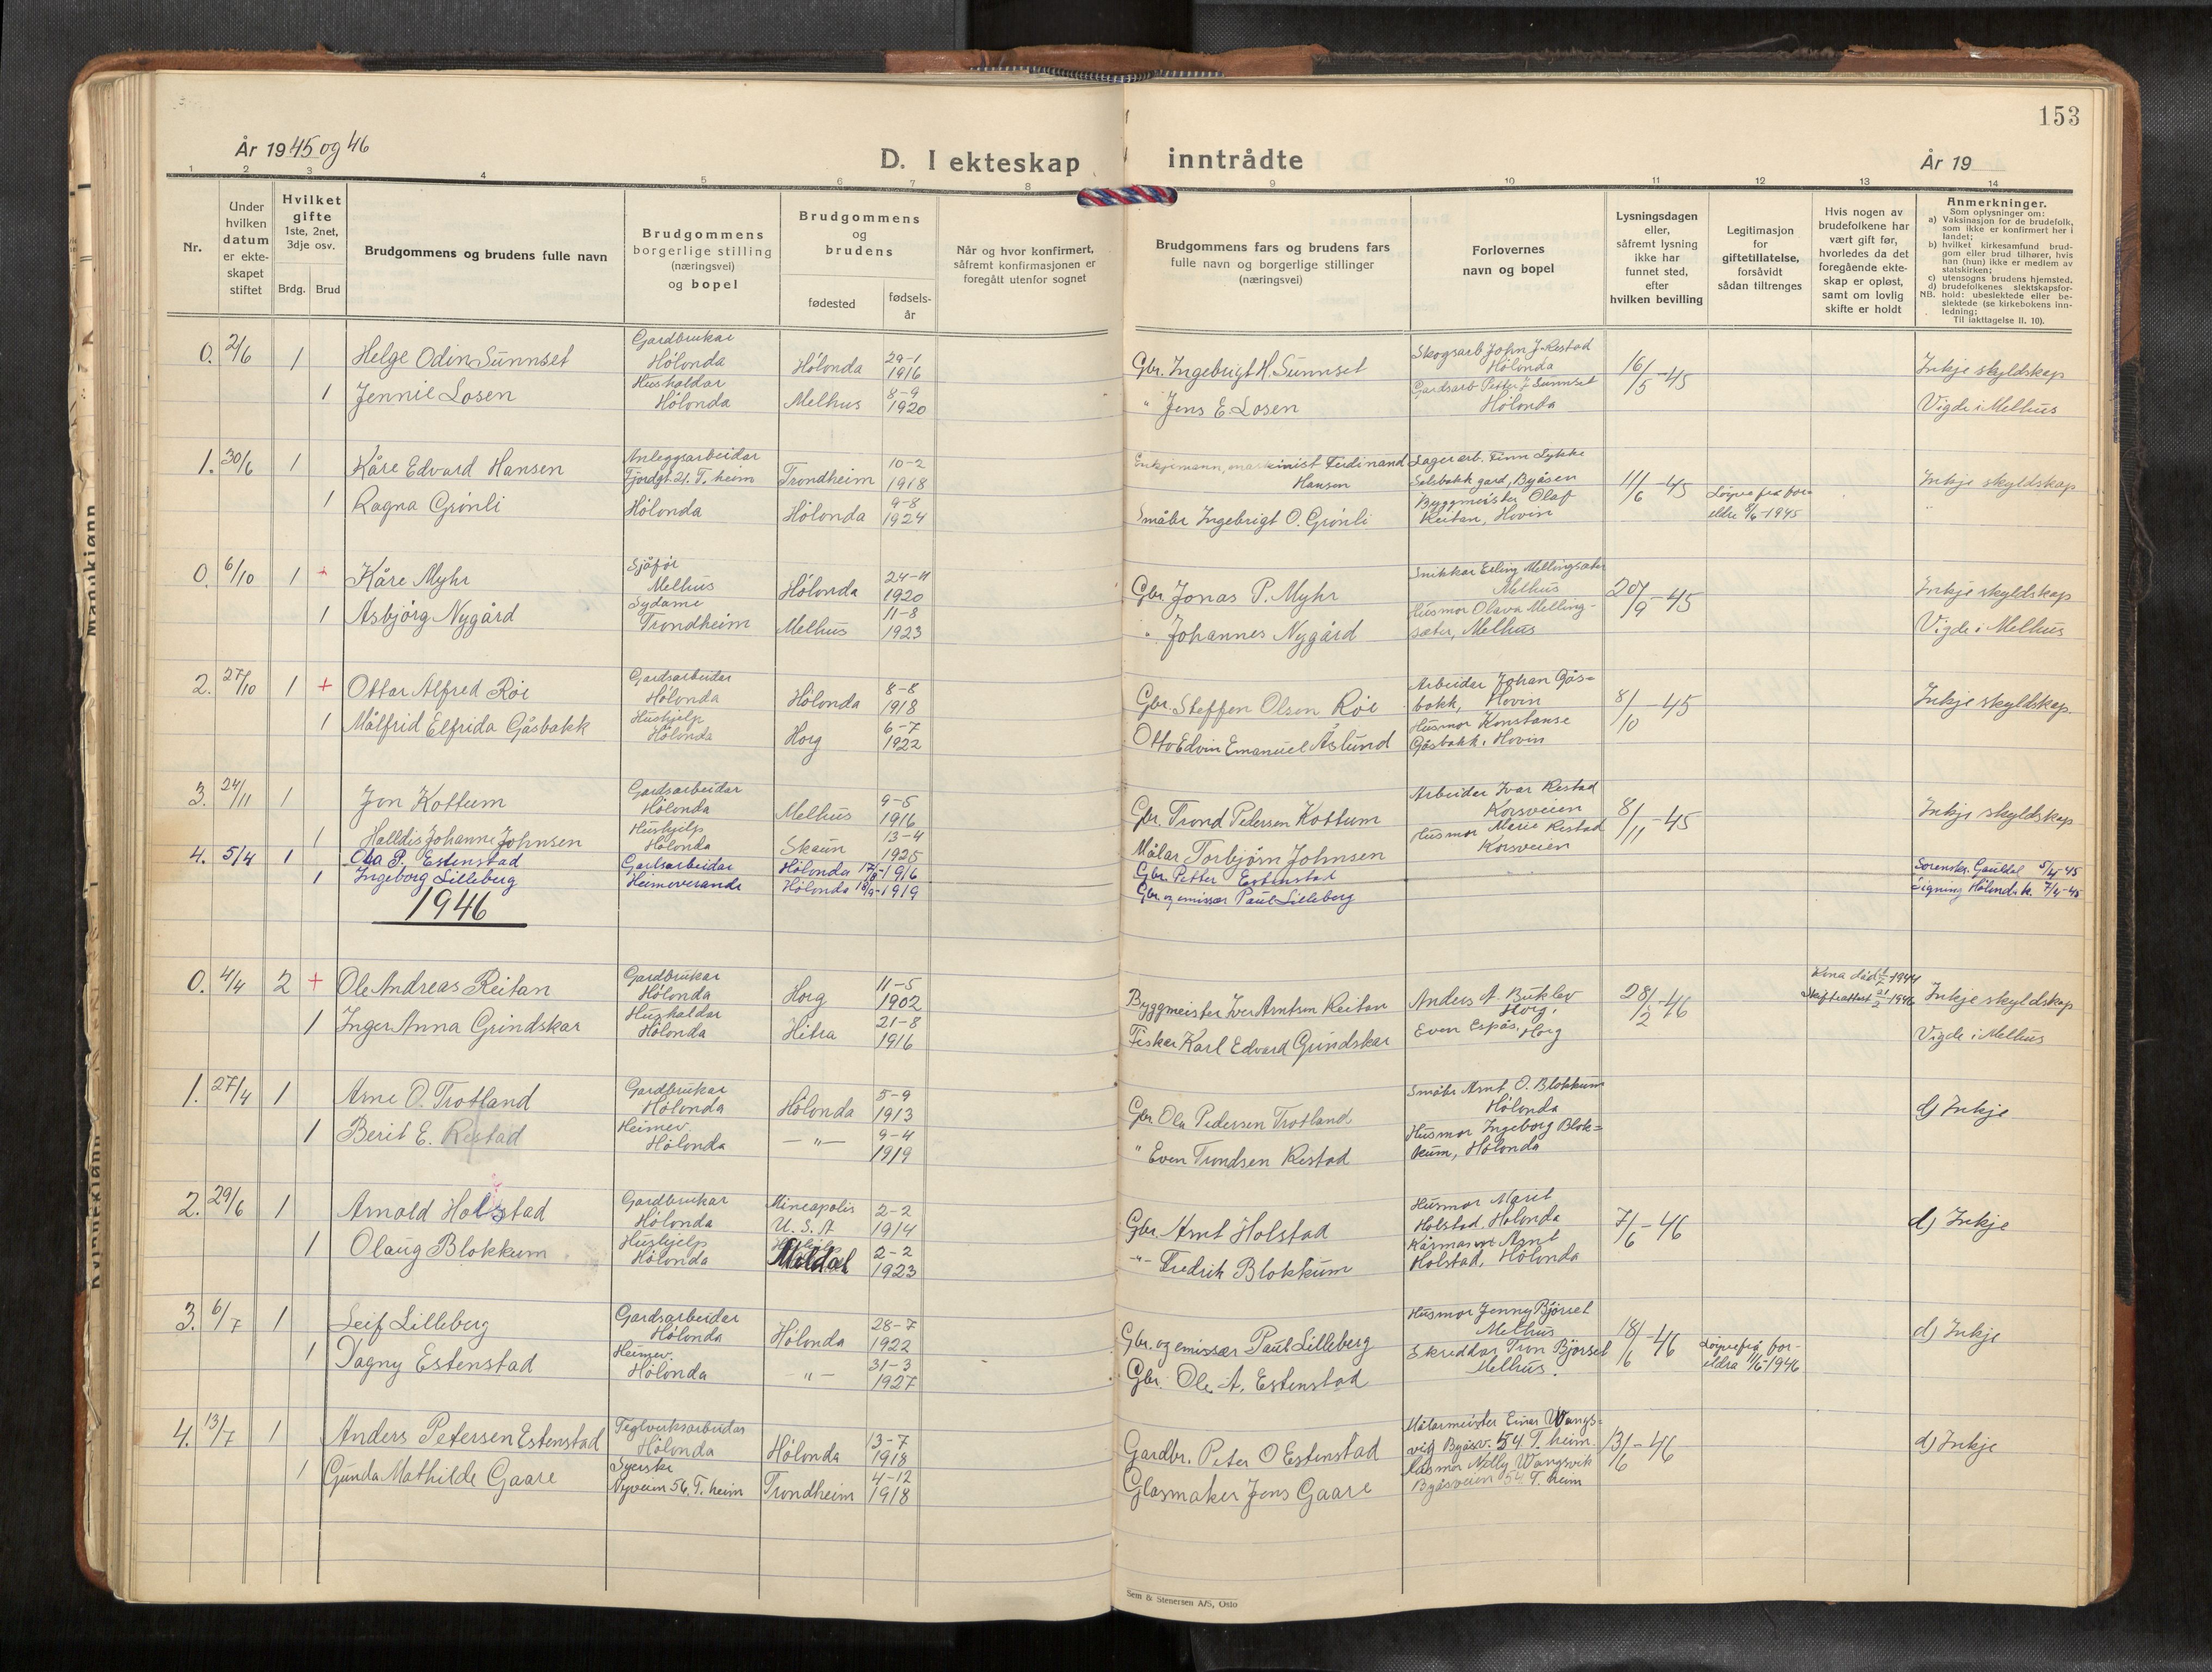 153
År 1945 og 46
D. I ekteskap inntrådte
År 19
1 2 3 4 5 6 7 8 9 10 11 12 13 14
Nr.
Under hvilken datum er ekteskapet stiftet
Hvilket gifte 1ste, 2net, 3dje osv.
Brdg. Brud
Brudgommens og brudens fulle navn
Brudgommens borgerlige stilling (næringsvei) og bopel
Brudgommens og brudens
fødested
fødselsår
Når og hvor konfirmert, såfremt konfirmasjonen er foregått utenfor sognet
Brudgommens fars og brudens fars fulle navn og borgerlige stillinger (næringsvei)
Forlovernes navn og bopel
Lysningsdagen eller, såfremt lysning ikke har funnet sted, efter hvilken bevilling
Legitimasjon for giftetillatelse, forsåvidt sådan tiltrenges
Hvis nogen av brudefolkene har vært gift før, hvorledes da det foregående ekteskap er opløst, samt om lovlig skifte er holdt
Anmerkninger.
Som oplysninger om:
a) Vaksinasjon for de brudefolk, som ikke er konfirmert her i landet;
b) hvilket kirkesamfund brudgom eller brud tilhører, hvis han (hun) ikke er medlem av statskirken;
c) utensogns brudens hjemsted.
d) brudefolkenes slektskapsforhold: ubeslektede eller beslektede (se kirkebokens innledning;
NB. Til iakttagelse II. 10).
0. 2/6 1 Helge Odin Sunnset Gardbrukar Hølonda Hølonda 29-1 1916 Gbr. Ingebrigt H. Sunnset Skogsarb John J. Restad Hølonda 16/5-45 Inkje skyldskap
1 Jennie Losen Hushaldar Hølonda Melhus 8-9 1920 " Jens E. Losen Gardsarb Petter Sunnset Hølonda Vigde i Melhus
1. 30/6 1 Kåre Edvard Hansen Anleggsarbeidar Fjordgt. 21. T.heim Trondheim 10-2 1918 Enkjemann, maskinist Ferdinand Hansen Lagerarb. Finn Lykke Solbakk gard, Byåsen 11/6-45 Inkje skyldskap
1 Ragna Grønli Hølonda Hølonda 9-8 1924 Småbr Ingebrigt O. Grønli Byggmeister Olaf Reitan, Hovin Løyve frå foreldre 8/6-1945
0. 6/10 1 + Kåre Myhr Sjåfør Melhus Hølonda 24-11 1920 Gbr. Jonas P. Myhr Snikkar Erling Mellingsæter Melhus 20/9-45 Inkje skyldskap
1 Asbjørg Nygård Sydame Trondheim Melhus 11-8 1923 " Johannes Nygård Husmor Olava Mellingsæter, Melhus Vigde i Melhus
2. 27/10 1 + Ottar Alfred Røe Gardsarbeidar Hølonda Hølonda 8-8 1918 Gbr. Steffen Olsen Røe Arbeidar Johan Gåsbakk, Hovin 8/10-45 Inkje skyldskap.
1 Målfrid Elfrida Gåsbakk Hushjelp Hølonda Horg 6-7 1922 Otto Edvin Emanuel Åslund Husmor Konstanse Gåsbakk, Hovin
3. 24/11 1 Jon Kottum Gardsarbeidar Hølonda Melhus 9-5 1916 Gbr. Trond Pedersen Kottum Arbeidar Ivar Restad Korsveien 8/11-45 Inkje skyldskap
1 Halldis Johanne Johnsen Hushjelp Hølonda Skaun 13-4 1925 Målar Torbjørn Johnsen Husmor Marie Restad Korsveien
4. 5/4 1 Ola P. Estenstad Gardsarbeidar Hølonda 1916 Gbr. Petter Estenstad Sorenskr. Gauldal 5/4-45
1 Ingeborg Lilleberg Heimeverande Hølonda 1919 Gbr. og emissær Paul Lilleberg Signing Hølonda k. 7/4-45
1946
0. 4/4 2 + Ole Andreas Reitan Gardbrukar Hølonda Horg 11-5 1902 Byggmeister Iver Arntsen Reitan Anders A. Buklev Horg. 28/2-46 Kona død 1944 Skifteattest 21/2 1946 Inkje skyldskap
1 Inger Anna Grindskar Hushaldar Hølonda Hitra 21-8 1916 Fiskar Karl Edvard Grindskar Even Espås, Horg Vigde i Melhus
1. 27/4 1 Arne O. Trotland Gardbrukar Hølonda Hølonda 5-9 1913 Gbr. Ola Pedersen Trotland Småbr Arnt O. Blokkum Hølonda d) Inkje
1 Berit E. Restad Heimev. Hølonda — " — 9-4 1919 " Even Trondsen Restad Husmor Ingeborg Blokkum, Hølonda
2. 29/6 1 Arnold Holstad Gardbrukar Hølonda Mineapolis U.S.A 2-2 1914 Gbr. Arnt Holstad Husmor Marit Holstad, Hølonda 7/6-46 d) Inkje
1 Olaug Blokkum Hushjelp Hølonda Meldal 2-2 1923 -"- Fredrik Blokkum Arnt Holstad, Hølonda
3. 6/7 1 Leif Lilleberg Gardsarbeidar Hølonda Hølonda 28-7 1922 Gbr. og emissær Paul Lilleberg Husmor Jenny Bjørset Melhus 18/6-46 d) Inkje
1 Dagny Estenstad Heimev. Hølonda — " — 31-3 1927 Gbr. Ole A. Estenstad Skreddar Tron Bjørset Melhus. Løyve frå foreldra 11/6-1946
4. 13/7 1 Anders Petersen Estenstad Teglverksarbeidar Hølonda Hølonda 13-7 1918 Gardbr. Peter O Estenstad Målarmeister Einar Wangsvik Byåsv. 54 T.heim. 13/6-46 d) Inkje
1 Gunda Mathilde Gaare Syerske Nyveien 56, T.heim Trondheim 4-12 1918 Glasmaker Jens Gaare Husmor Nelly Wangsvik Byåsveien 54 T.heim
Sem & Stenersen A/S, Oslo